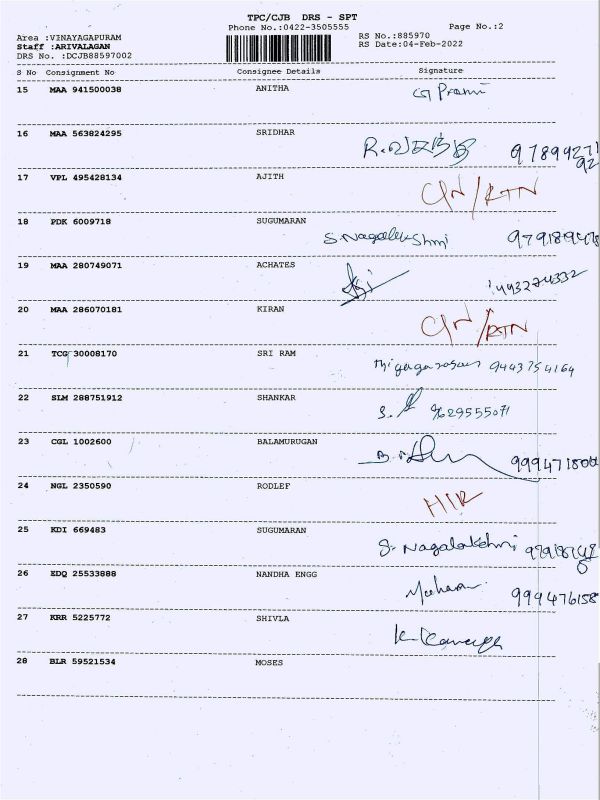 TPC/CJB DRS - SPT
Phone No.:0422-3505555 Page No.:2
Area :VINAYAGAPURAM RS No.:885970
Staff :ARIVALAGAN RS Date:04-Feb-2022
DRS No. :DCJB88597002
S No Consignment No Consignee Details Signature
15 MAA 941500038 ANITHA
16 MAA 563824295 SRIDHAR
17 VPL 495428134 AJITH
18 PDK 6009718 SUGUMARAN S. Nagalakshmi
19 MAA 280749071 ACHATES
20 MAA 286070181 KIRAN
21 TCG 30008170 SRI RAM 9443754164
22 SLM 288751912 SHANKAR 9629555071
23 CGL 1002600 BALAMURUGAN
24 NGL 2350590 RODLEF
25 KDI 669483 SUGUMARAN S. Nagalakshmi
26 EDQ 25533888 NANDHA ENGG 999476158
27 KRR 5225772 SHIVLA
28 BLR 59521534 MOSES